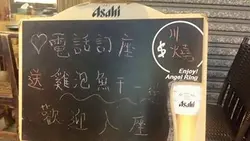 Asahi
♡電話訂座
送雞泡魚干一
歡迎入座
川燒
Enjoy!
Angel Ring
Asahi